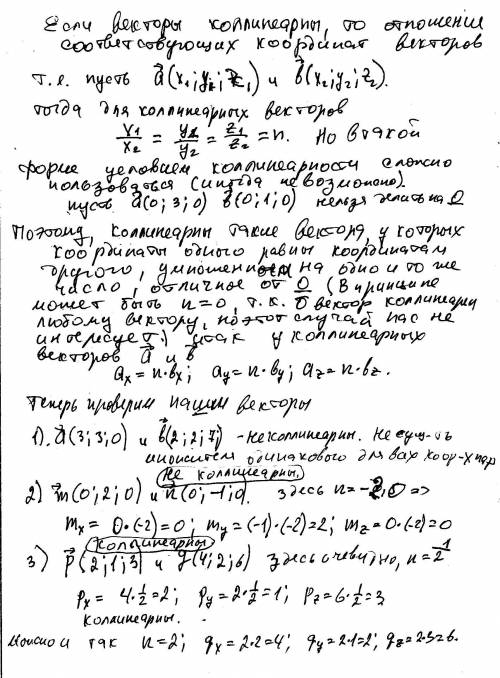 Если векторы коллинеарны, то отношение
соответствующих координат векторов
т.е. пусть a(x1; y1; z1) и b(x2; y2; z2).
тогда для коллинеарных векторов
x1/x2 = y1/y2 = z1/z2 = n. Но в такой
форме условием коллинеарности сложно
пользоваться (иногда невозможно).
пусть a(0; 3; 0) b(0; 1; 0) нельзя делить на 0
Поэтому, коллинеарны такие вектора, у которых
координаты одного равны координатам
другого, умноженным на одно и то же
число, отличное от 0 (В принципе
может быть n=0, т.к. 0 вектор коллинеарен
любому вектору, но этот случай нас не
интересует.) итак у коллинеарных
векторов a и b
ax = n·bx; ay = n·by; az = n·bz.
Теперь проверим наши векторы
1). a(3; 3; 0) и b(2; 2; 7) - неколлинеарны. Не сущ-ть
множителя одинакового для вах коор-х пар
не коллинеарны.
2) m(0; 2; 0) и n(0; -1; 0). здесь n = -2,0 =>
mx = 0·(-2) = 0; my = (-1)·(-2) = 2; mz = 0·(-2) = 0
коллинеарны
3) p(2; 1; 3) и q(4; 2; 6) здесь очевидно, n = 1/2
px = 4·1/2 = 2; py = 2·1/2 = 1; pz = 6·1/2 = 3
коллинеарны.
Можно и так n=2; qx = 2·2 = 4; qy = 2·1 = 2; qz = 2·3 = 6.